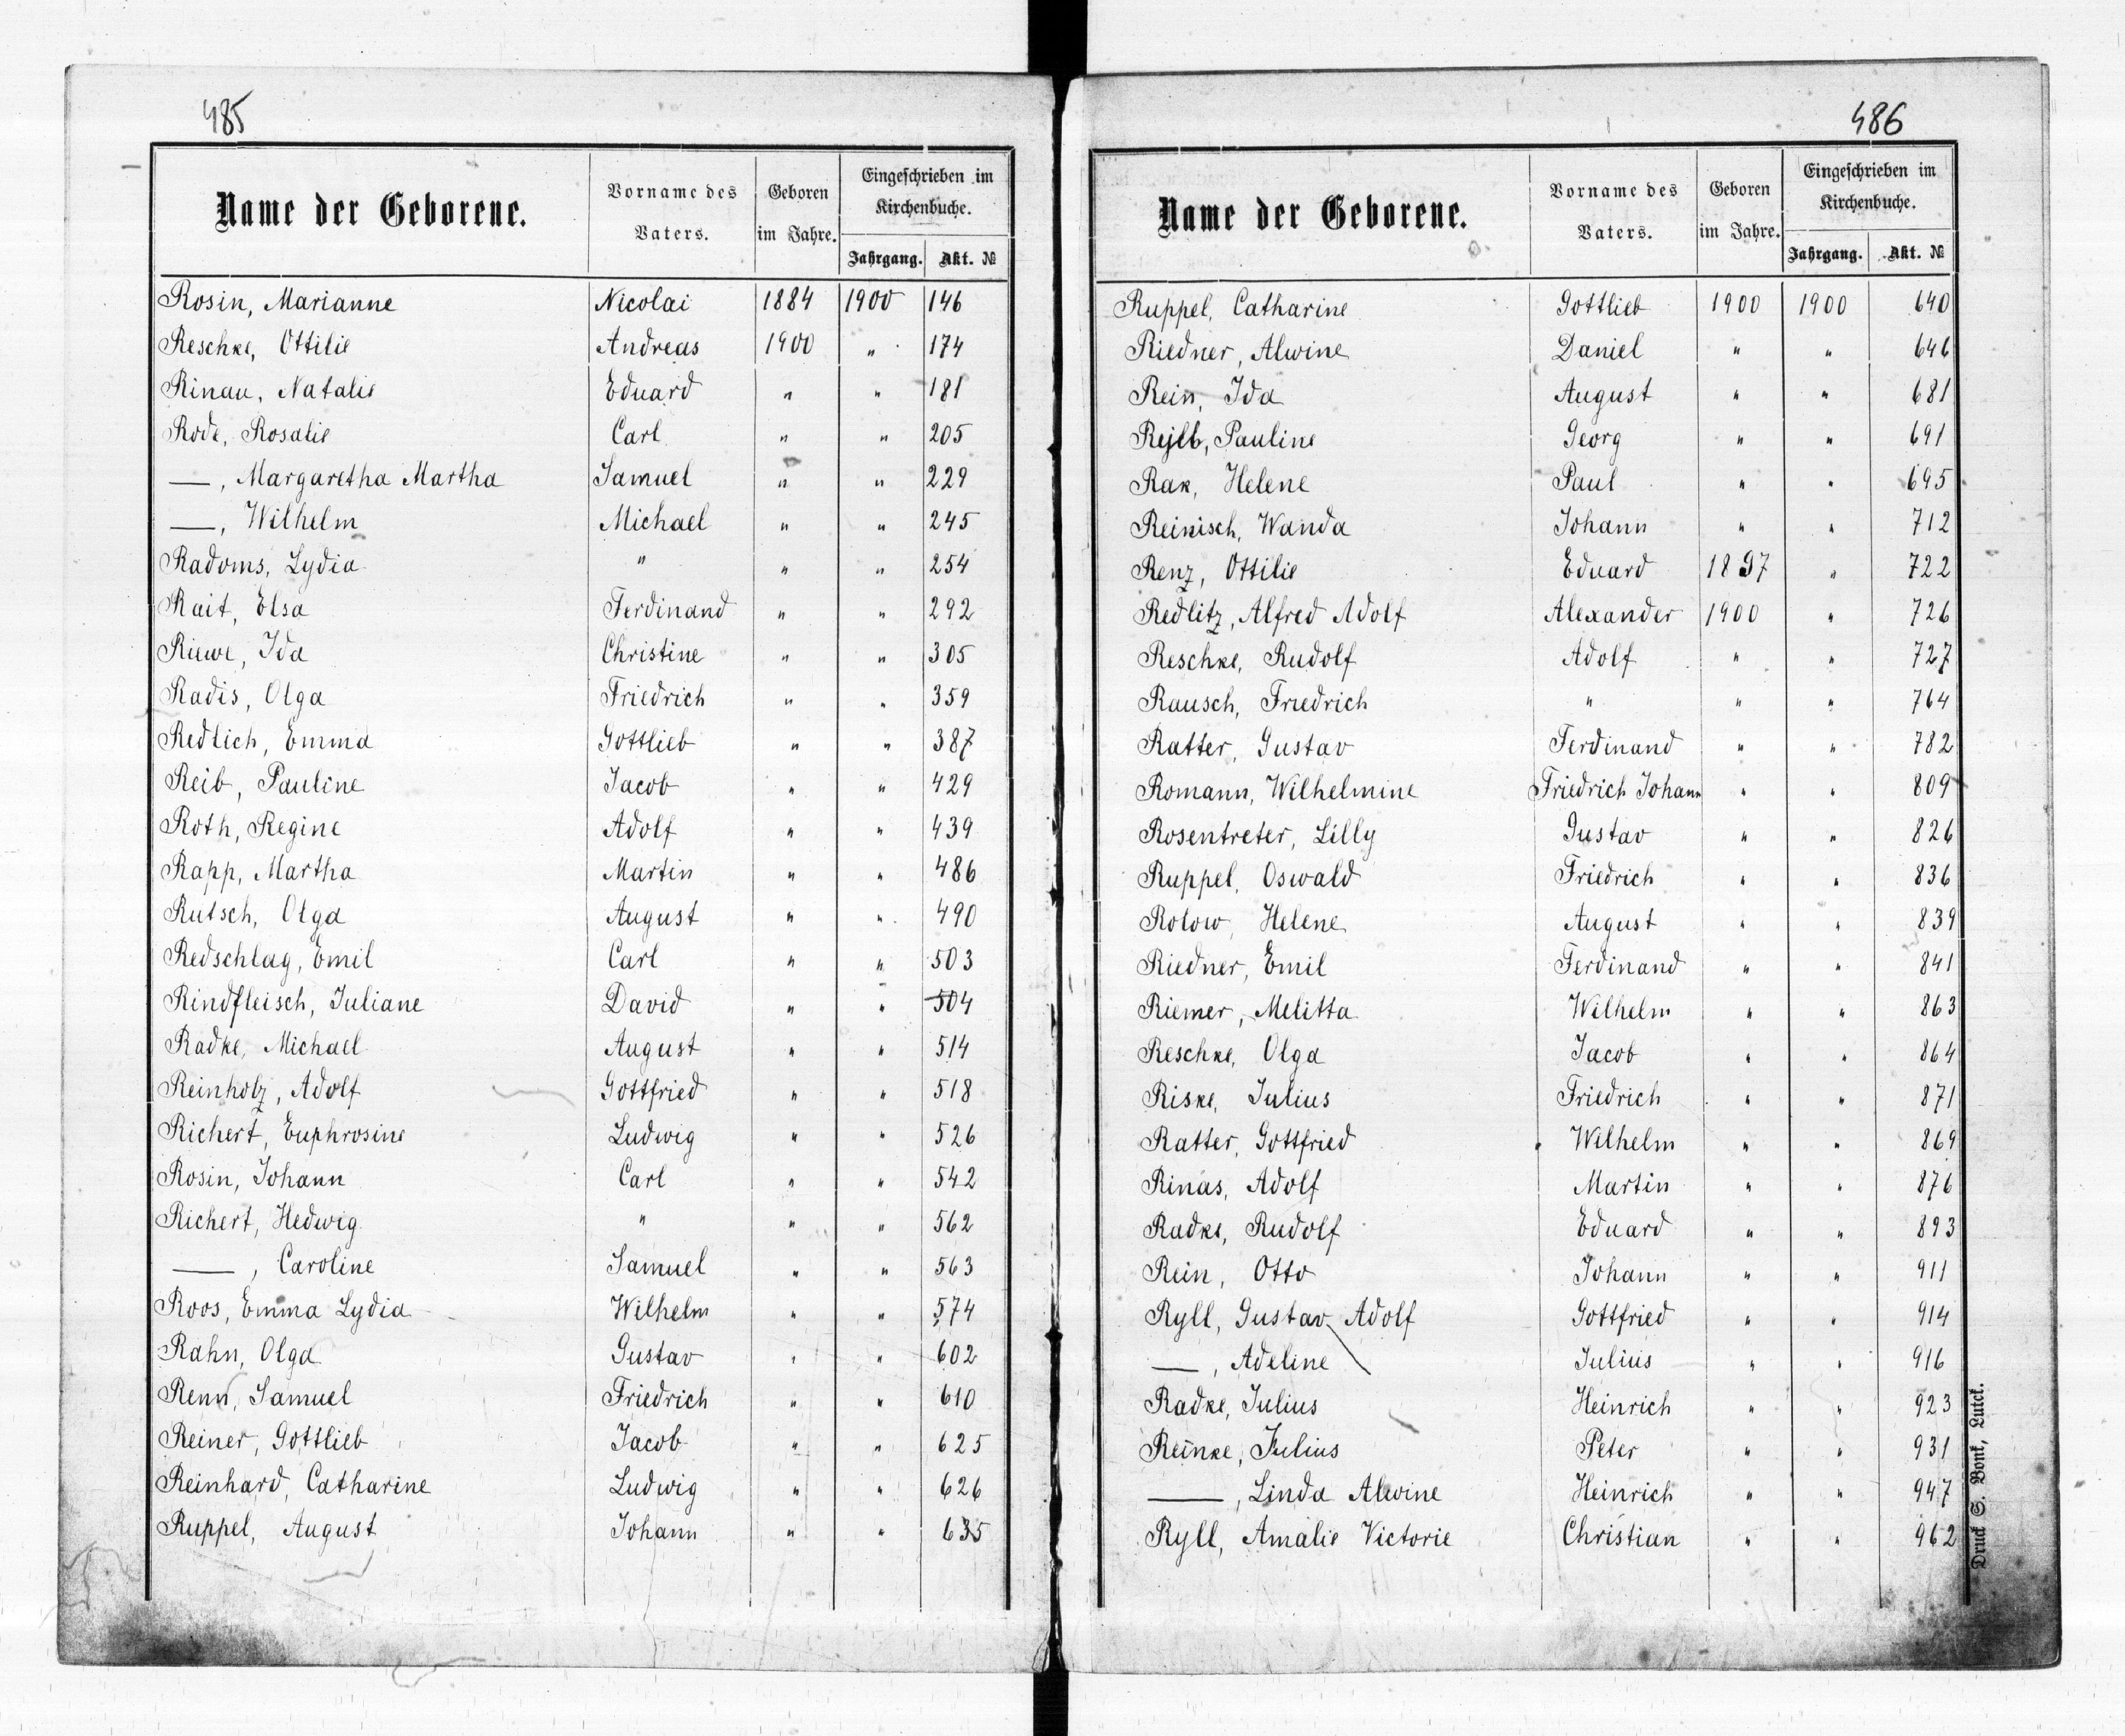 485
Name der Geborene.
Vorname des Vaters.
Geboren im Jahre.
Eingeschrieben im Kirchenbuche.
Jahrgang. Akt. №
Rosin, Marianne Nicolai 1884 1900 146
Reschke, Ottilie Andreas 1900 " 174
Rinau, Natalie Eduard " " 181
Rode, Rosalie Carl " " 205
—, Margaretha Martha Samuel " " 229
—, Wilhelm Michael " " 245
Radoms, Lydia " " " 254
Rait, Elsa Ferdinand " " 292
Riewe, Ida Christine " " 305
Radis, Olga Friedrich " " 359
Redlich, Emma Gottlieb " " 387
Reib, Pauline Jacob " " 429
Roth, Regine Adolf " " 439
Rapp, Martha Martin " " 486
Rutsch, Olga August " " 490
Redschlag, Emil Carl " " 503
Rindfleisch, Juliane David " " 504
Radke, Michael August " " 514
Reinholz, Adolf Gottfried " " 518
Richert, Euphrosine Ludwig " " 526
Rosin, Johann Carl " " 542
Richert, Hedwig " " " 562
—, Caroline Samuel " " 563
Roos, Emma Lydia Wilhelm " " 574
Rahn, Olga Gustav " " 602
Renn, Samuel Friedrich " " 610
Reiner, Gottlieb Jacob " " 625
Reinhard, Catharine Ludwig " " 626
Ruppel, August Johann " " 635
486
Name der Geborene.
Vorname des Vaters.
Geboren im Jahre.
Eingeschrieben im Kirchenbuche.
Jahrgang. Akt. №
Ruppel, Catharine Gottlieb 1900 1900 640
Riedner, Alwine Daniel " " 646
Rein, Ida August " " 681
Pauline Georg " " 691
Rak, Helene Paul " " 695
Reinisch, Wanda Johann " " 712
Renz, Ottilie Eduard 1897 " 722
Redlitz, Alfred Adolf Alexander 1900 " 726
Reschke, Rudolf Adolf " " 727
Rausch, Friedrich " " " 764
Ratter, Gustav Ferdinand " " 782
Romann, Wilhelmine Friedrich Johann " " 809
Rosentreter, Lilly Gustav " " 826
Ruppel, Oswald Friedrich " " 836
Rolow, Helene August " " 839
Riedner, Emil Ferdinand " " 841
Riemer, Melitta Wilhelm " " 863
Reschke, Olga Jacob " " 864
Riske, Julius Friedrich " " 871
Ratter, Gottfried Wilhelm " " 869
Rinas, Adolf Martin " " 876
Radke, Rudolf Eduard " " 893
Rein, Otto Johann " " 911
Ryll, Gustav Adolf Gottfried " " 914
—, Adeline Julius " " 916
Radke, Julius Heinrich " " 923
Reinke, Julius Peter " " 931
—, Linda Alwine Heinrich " " 947
Ryll, Amalie Victorie Christian " " 962
Druck S. Bonk, Luck.